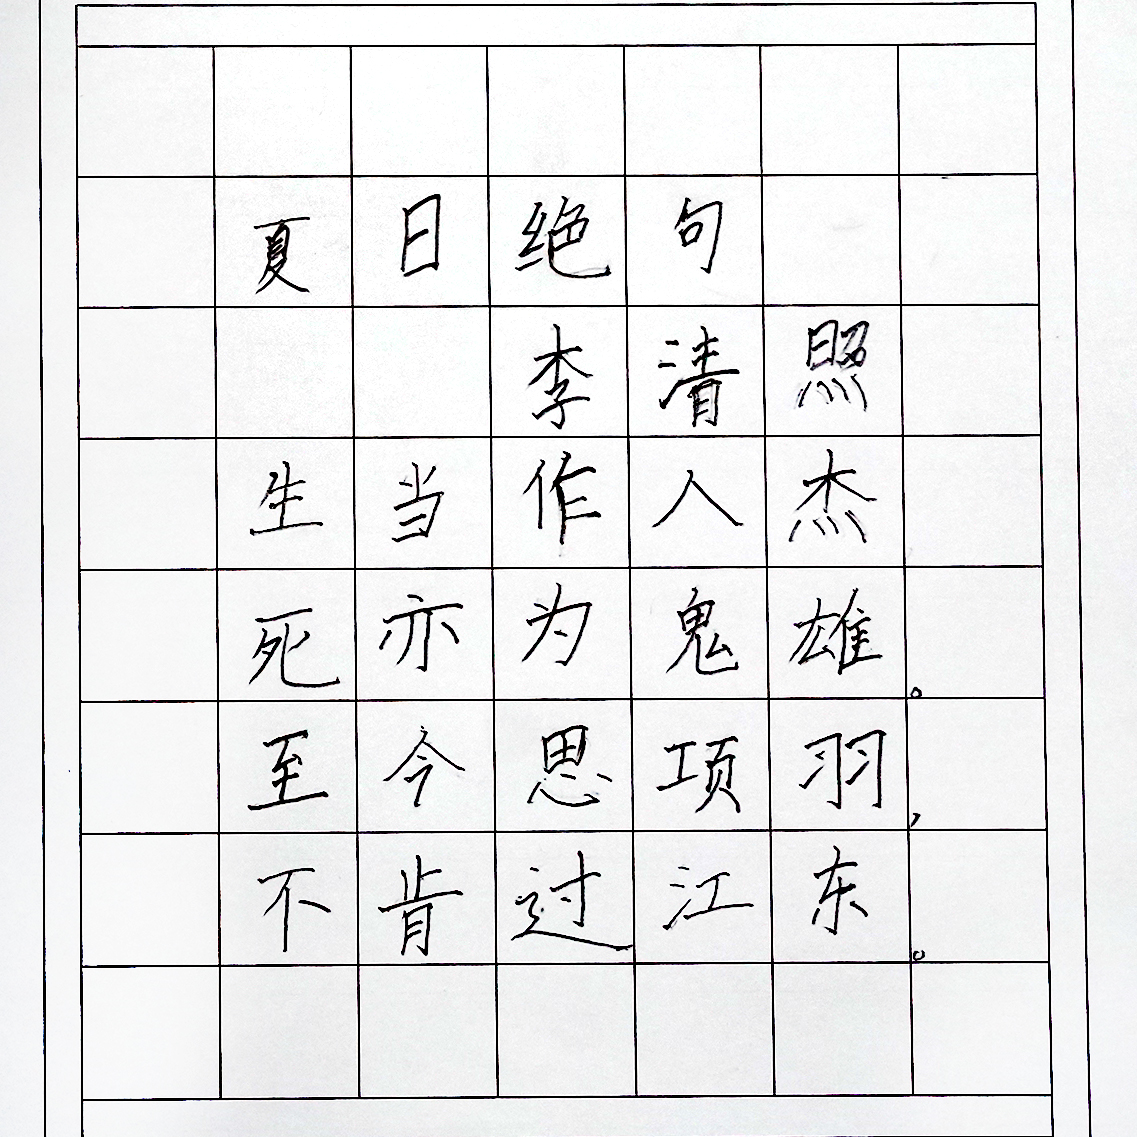 夏日绝句
李清照
生当作人杰
死亦为鬼雄。
至今思项羽,
不肯过江东。